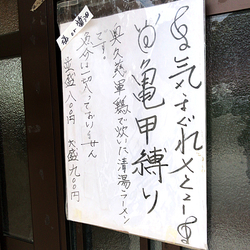 気まぐれメニュー
亀甲縛り
奥久慈軍鶏で炊いた清湯ラーメン
です。
魚介は一切入っておりません
麦盛八〇〇円 大盛九〇〇円